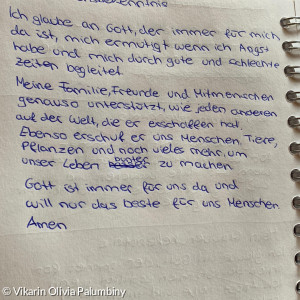 Ich glaube an Gott, der immer für mich
da ist, mich ermutigt wenn ich Angst
habe und mich durch gute und schlechte
Zeiten begleitet.
Meine Familie, Freunde und Mitmenschen
genauso unterstützt, wie jeden anderen
auf der Welt, die er erschaffen hat.
Ebenso erschuf er uns Menschen, Tiere,
Pflanzen und noch vieles mehr, um
unser Leben bunter zu machen.
Gott ist immer für uns da und
will nur das beste für uns Menschen
Amen
© Vikarin Olivia Palumbiny